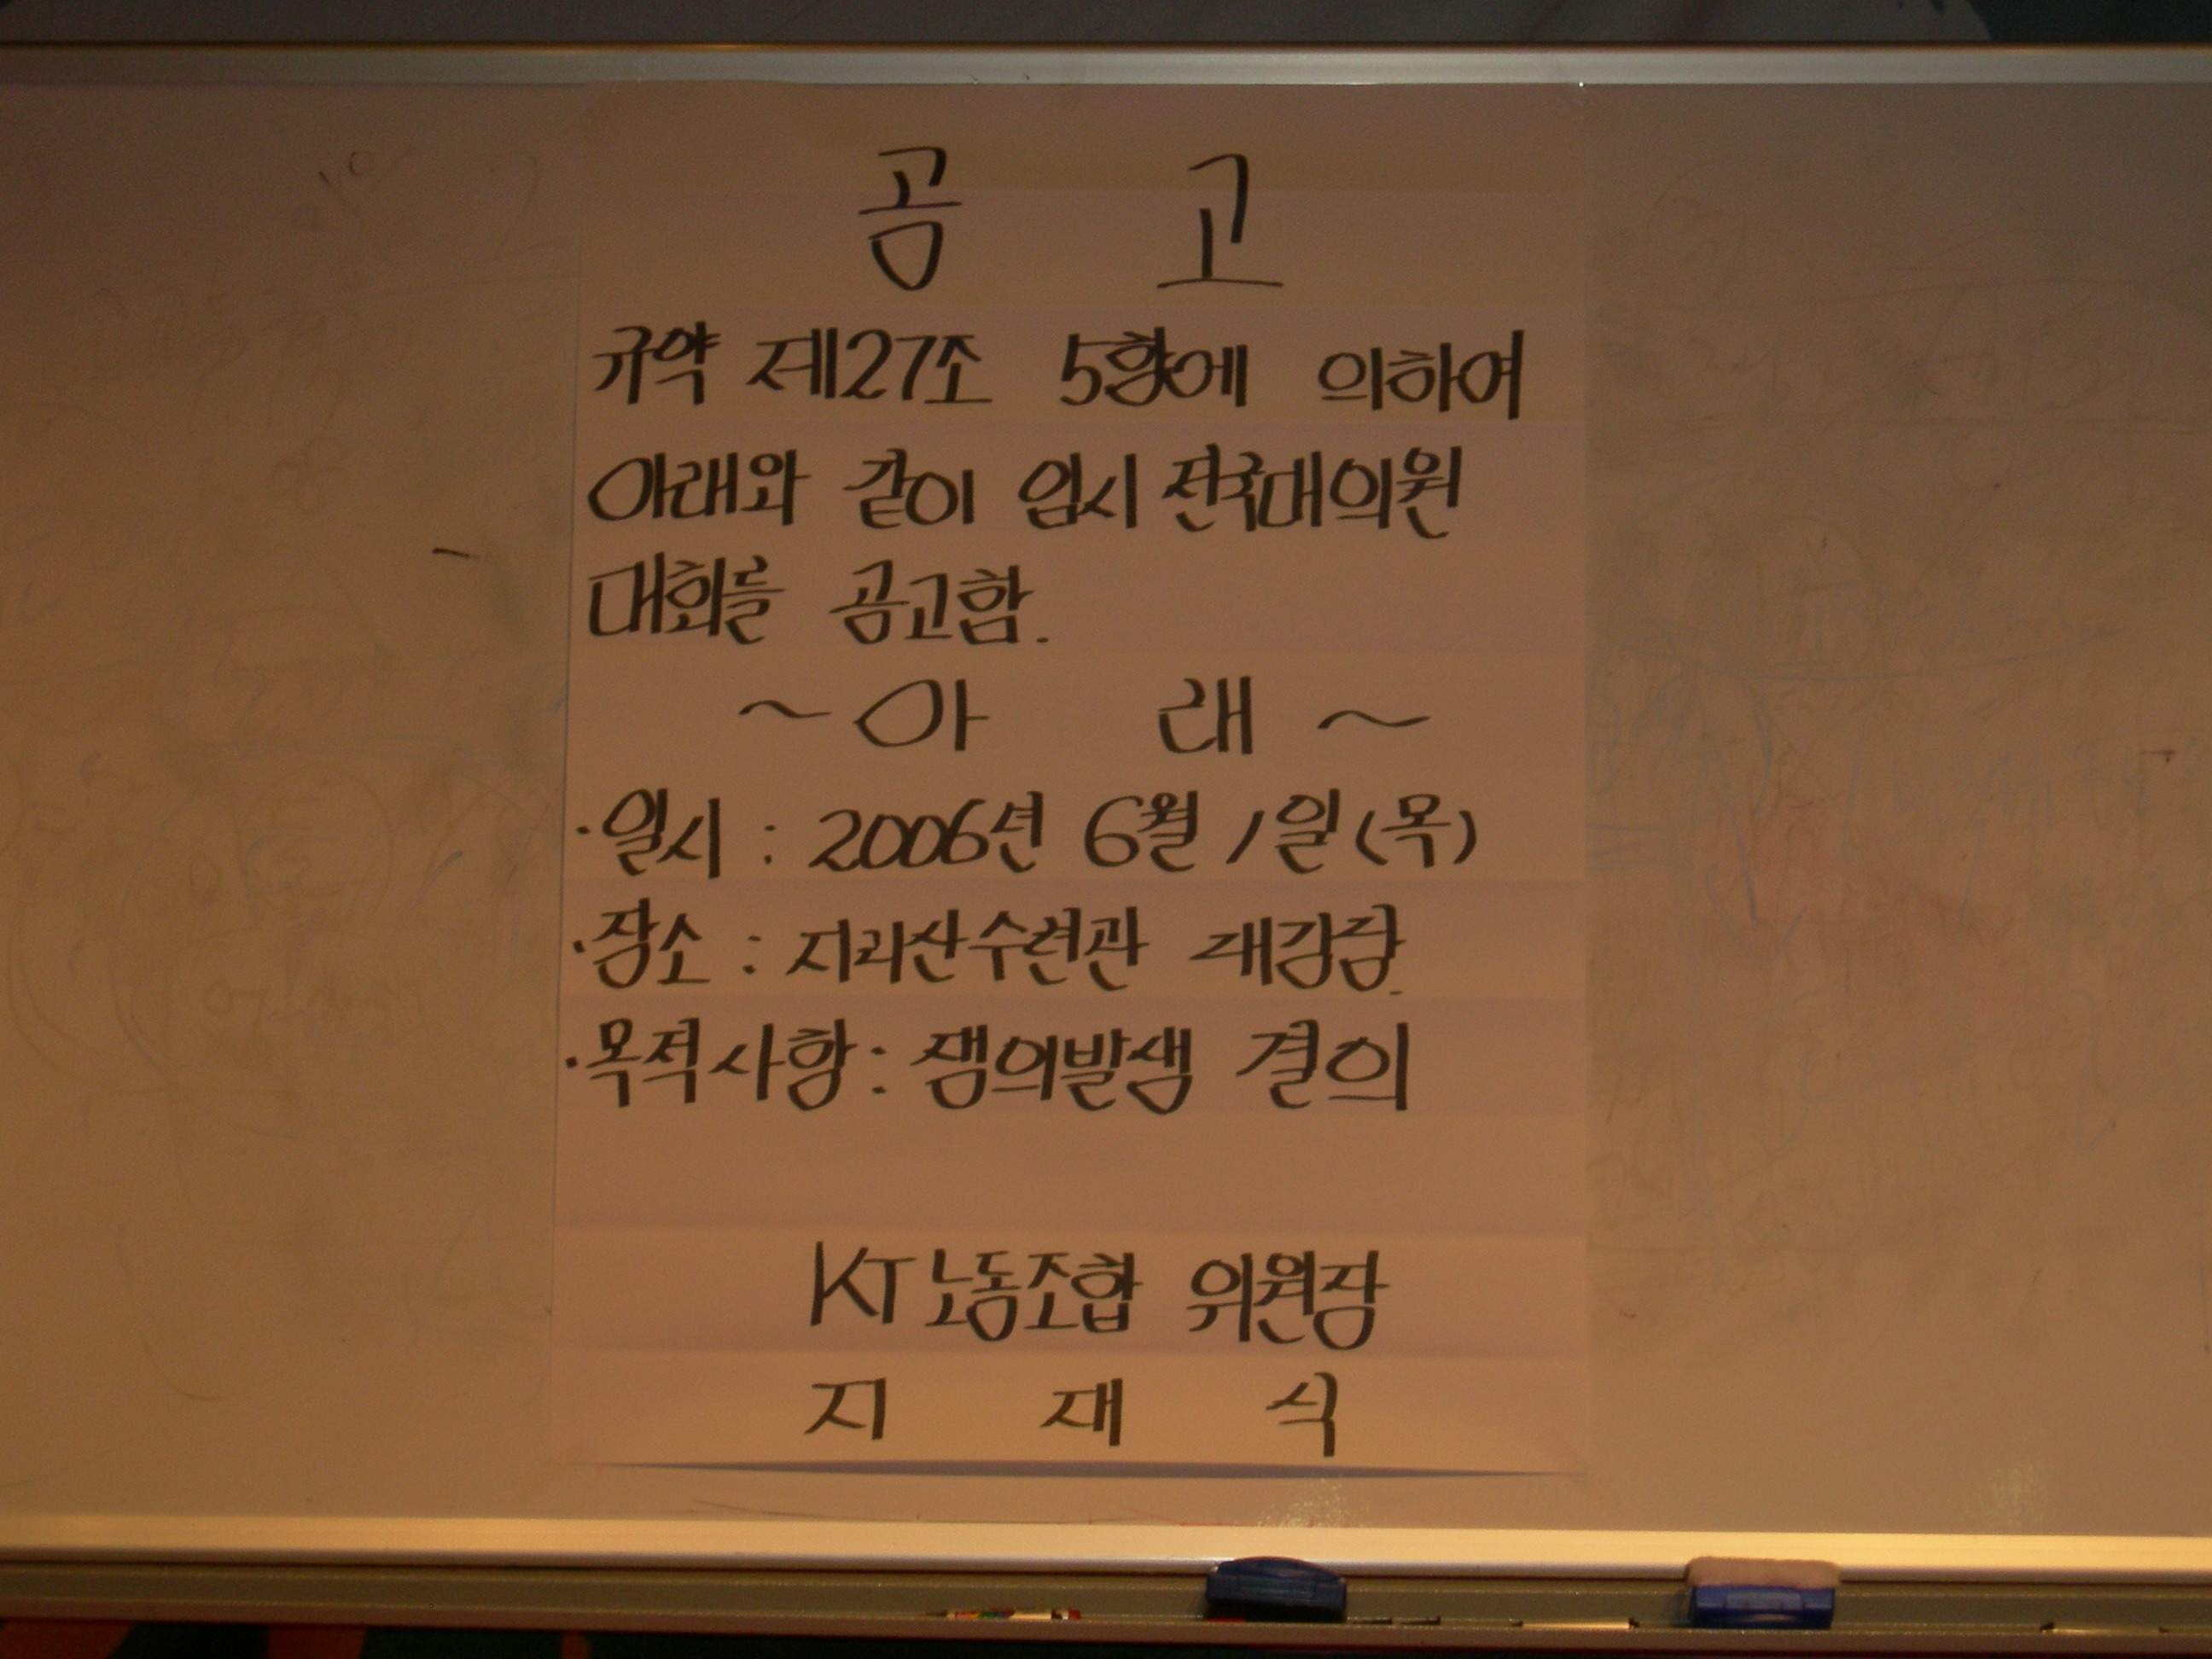 공 고
규약 제27조 5항에 의하여
아래와 같이 임시 전국대의원
대회를 공고함.
~아 래~
·일시 : 2006년 6월 1일(목)
·장소 : 지리산수련관 대강당.
·목적사항 : 쟁의발생 결의
KT노동조합 위원장
지 재 식